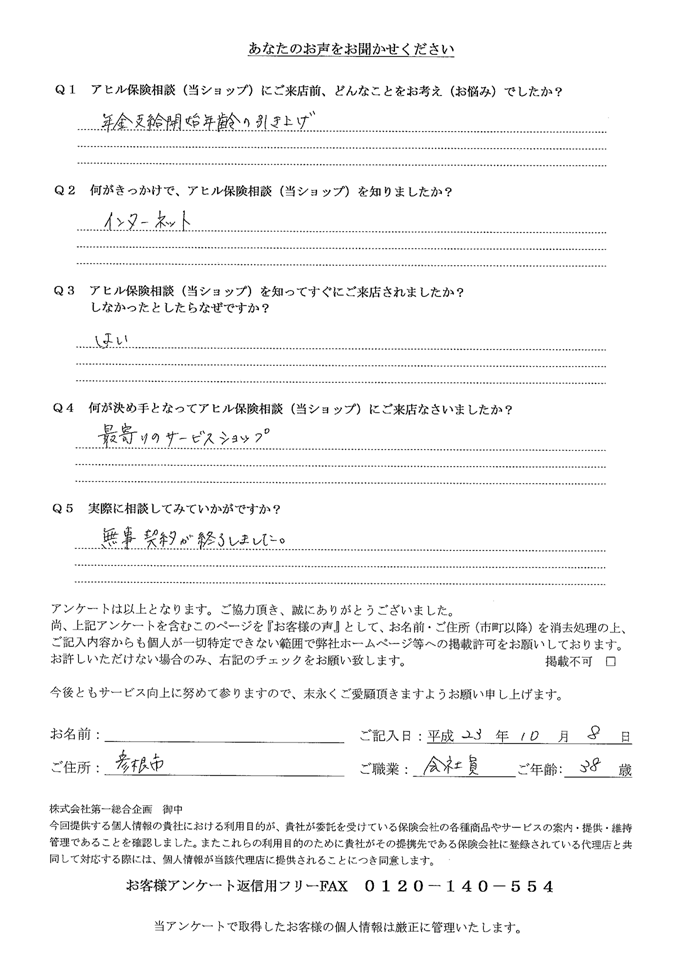 あなたのお声をお聞かせください
Q1 アヒル保険相談(当ショップ)にご来店前、どんなことをお考え(お悩み)でしたか?
年金支給開始年齢の引き上げ
Q2 何がきっかけで、アヒル保険相談(当ショップ)を知りましたか?
インターネット
Q3 アヒル保険相談(当ショップ)を知ってすぐにご来店されましたか?
しなかったとしたらなぜですか?
はい
Q4 何が決め手となってアヒル保険相談(当ショップ)にご来店なさいましたか?
最寄りのサービスショップ
Q5 実際に相談してみていかがですか?
無事契約が終了しました。
アンケートは以上となります。ご協力頂き、誠にありがとうございました。
尚、上記アンケートを含むこのページを『お客様の声』として、お名前・ご住所(市町以降)を消去処理の上、
ご記入内容からも個人が一切特定できない範囲で弊社ホームページ等への掲載許可をお願いしております。
お許しいただけない場合のみ、右記のチェックをお願い致します。 掲載不可 □
今後ともサービス向上に努めて参りますので、末永くご愛顧頂きますようお願い申し上げます。
お名前: ご記入日:平成 23 年 10 月 8 日
ご住所: 彦根市 ご職業: 会社員 ご年齢: 38 歳
株式会社第一総合企画 御中
今回提供する個人情報の貴社における利用目的が、貴社が委託を受けている保険会社の各種商品やサービスの案内・提供・維持
管理であることを確認しました。またこれらの利用目的のために貴社がその提携先である保険会社に登録されている代理店と共
同して対応する際には、個人情報が当該代理店に提供されることにつき同意します。
お客様アンケート返信用フリーFAX 0120-140-554
当アンケートで取得したお客様の個人情報は厳正に管理いたします。